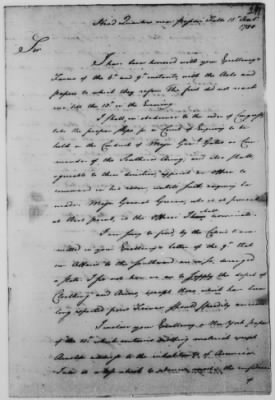 Head Quarters near Passaic Falls 15th Octr
1780
Sir,
I have been honored with your Excellency's
Favors of the 6th and 9th instant, with the Acts and
papers to which they refer. The first did not reach
me till the 12th in the Evening.
I shall, in obedience to the order of Congress,
take the proper steps for a Court of Enquiry to be
held on the Conduct of Major Genl Gates as Com-
mander of the Southern Army, and also shall,
agreeable to their direction, appoint an Officer to
command in his room, untill such enquiry be
made. Major General Greene, who is at present
at West point, is the Officer I shall nominate.
I am sorry to find, by the Copies trans-
mitted in your Excellency's letter of the 9th that
our Affairs to the Southward are in so deranged
a state. I see not how we are to supply the
Cloathing and Arms, except those which have been
long expected from France should speedily arrive.
I inclose your Excellency a New York paper
of the 11th which contains nothing material except
Arnolds address to the inhabitants of America